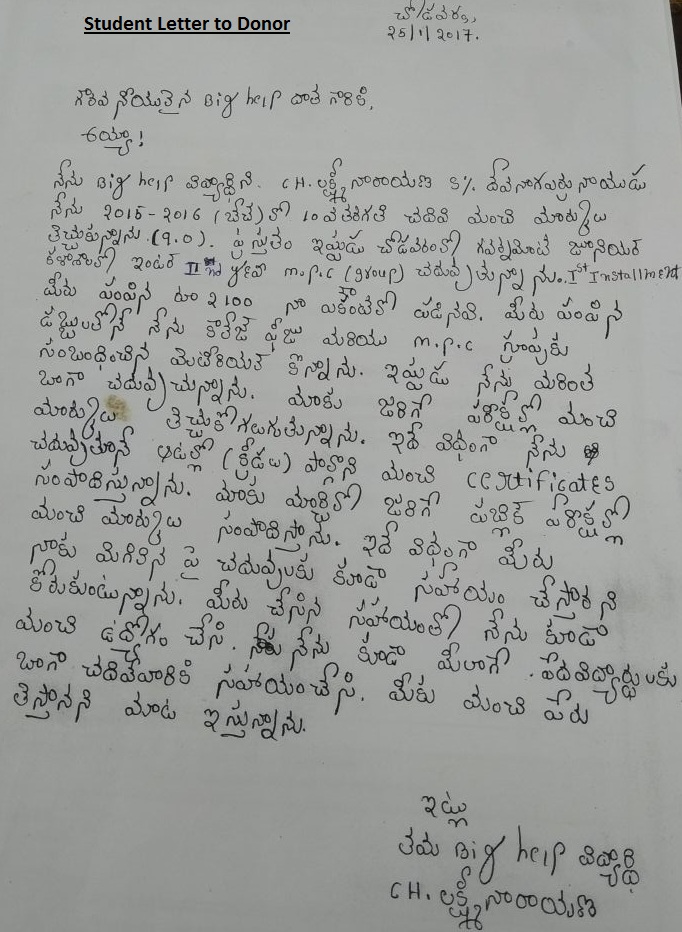 Student Letter to Donor
చోడవరం,
25/1/2017.
గౌరవ నీయులైన Big help దాత గారికి,
అయ్యా!
నేను Big help విద్యార్థిని. CH. లక్ష్మీ నారాయణ S/o దేవ నాగపర్రు నాయుడు
నేను 2015-2016 (బేచ్) లో 10వ తరగతి చదివి మంచి మార్కులు
తెచ్చుకున్నాను (9.0). ప్రస్తుతం ఇప్పుడు చోడవరంలో గవర్నమెంట్ జూనియర్
కళాశాలలో ఇంటర్ IInd year m.p.c (group) చదువుతున్నాను. Ist Installment
మీరు పంపిన రూ 2100 నా ఎకౌంట్‌లో పడినవి. మీరు పంపిన
డబ్బులతోనే నేను కాలేజ్ ఫీజు మరియు m.p.c గ్రూపుకు
సంబంధించిన మెటీరియల్ కొన్నాను. ఇప్పుడు నేను మరింత
బాగా చదువుచున్నాను. మాకు జరిగే పరీక్షల్లో మంచి
మార్కులు తెచ్చుకోగలుగుతున్నాను. ఇదే విధంగా నేను
చదువుతూనే ఆటల్లో (క్రీడలు) పాల్గొని మంచి certificates
సంపాదిస్తున్నాను. మాకు మార్చిలో జరిగే పబ్లిక్ పరీక్షల్లో
మంచి మార్కులు సంపాదిస్తాను. ఇదే విధంగా మీరు
నాకు మిగిలిన పై చదువులకు కూడా సహాయం చేస్తారని
కోరుకుంటున్నాను. మీరు చేసిన సహాయంతో నేను కూడా
మంచి ఉద్యోగం చేసి. నేను కూడా మీలాగే పేదవిద్యార్థులకు
బాగా చదివేవారికి సహాయంచేసి. మీకు మంచి పేరు
తెస్తానని మాట ఇస్తున్నాను.
ఇట్లు
తమ Big help విద్యార్థి
CH. లక్ష్మీ నారాయణ